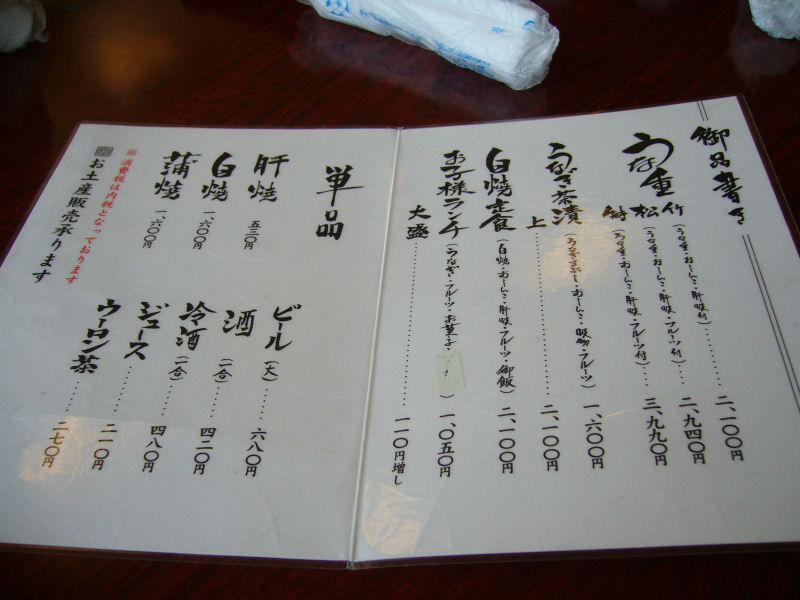 御品書き
うな重
竹 (うな重・おしんこ・肝吸付)………二、一〇〇円
松 (うな重・おしんこ・肝吸・フルーツ付)…二、九四〇円
特 (うな重・おしんこ・肝吸・フルーツ付)…三、九九〇円
うなぎ茶漬 (うなぎまぶし・おしんこ・吸物・フルーツ) 一、六〇〇円
上………二、一〇〇円
白焼定食 (白焼・おしんこ・肝吸・フルーツ・御飯) 二、一〇〇円
お子様ランチ (うなぎ・フルーツ・お菓子) 一、〇五〇円
大盛………一一〇円増し
単品
肝焼 五三〇円
白焼 一、六〇〇円
蒲焼 一、六〇〇円
ビール (大)……六八〇円
酒 (一合)……四二〇円
冷酒 (一合)……四八〇円
ジュース……二一〇円
ウーロン茶……二七〇円
※消費税は内税となっております
お土産販売承ります